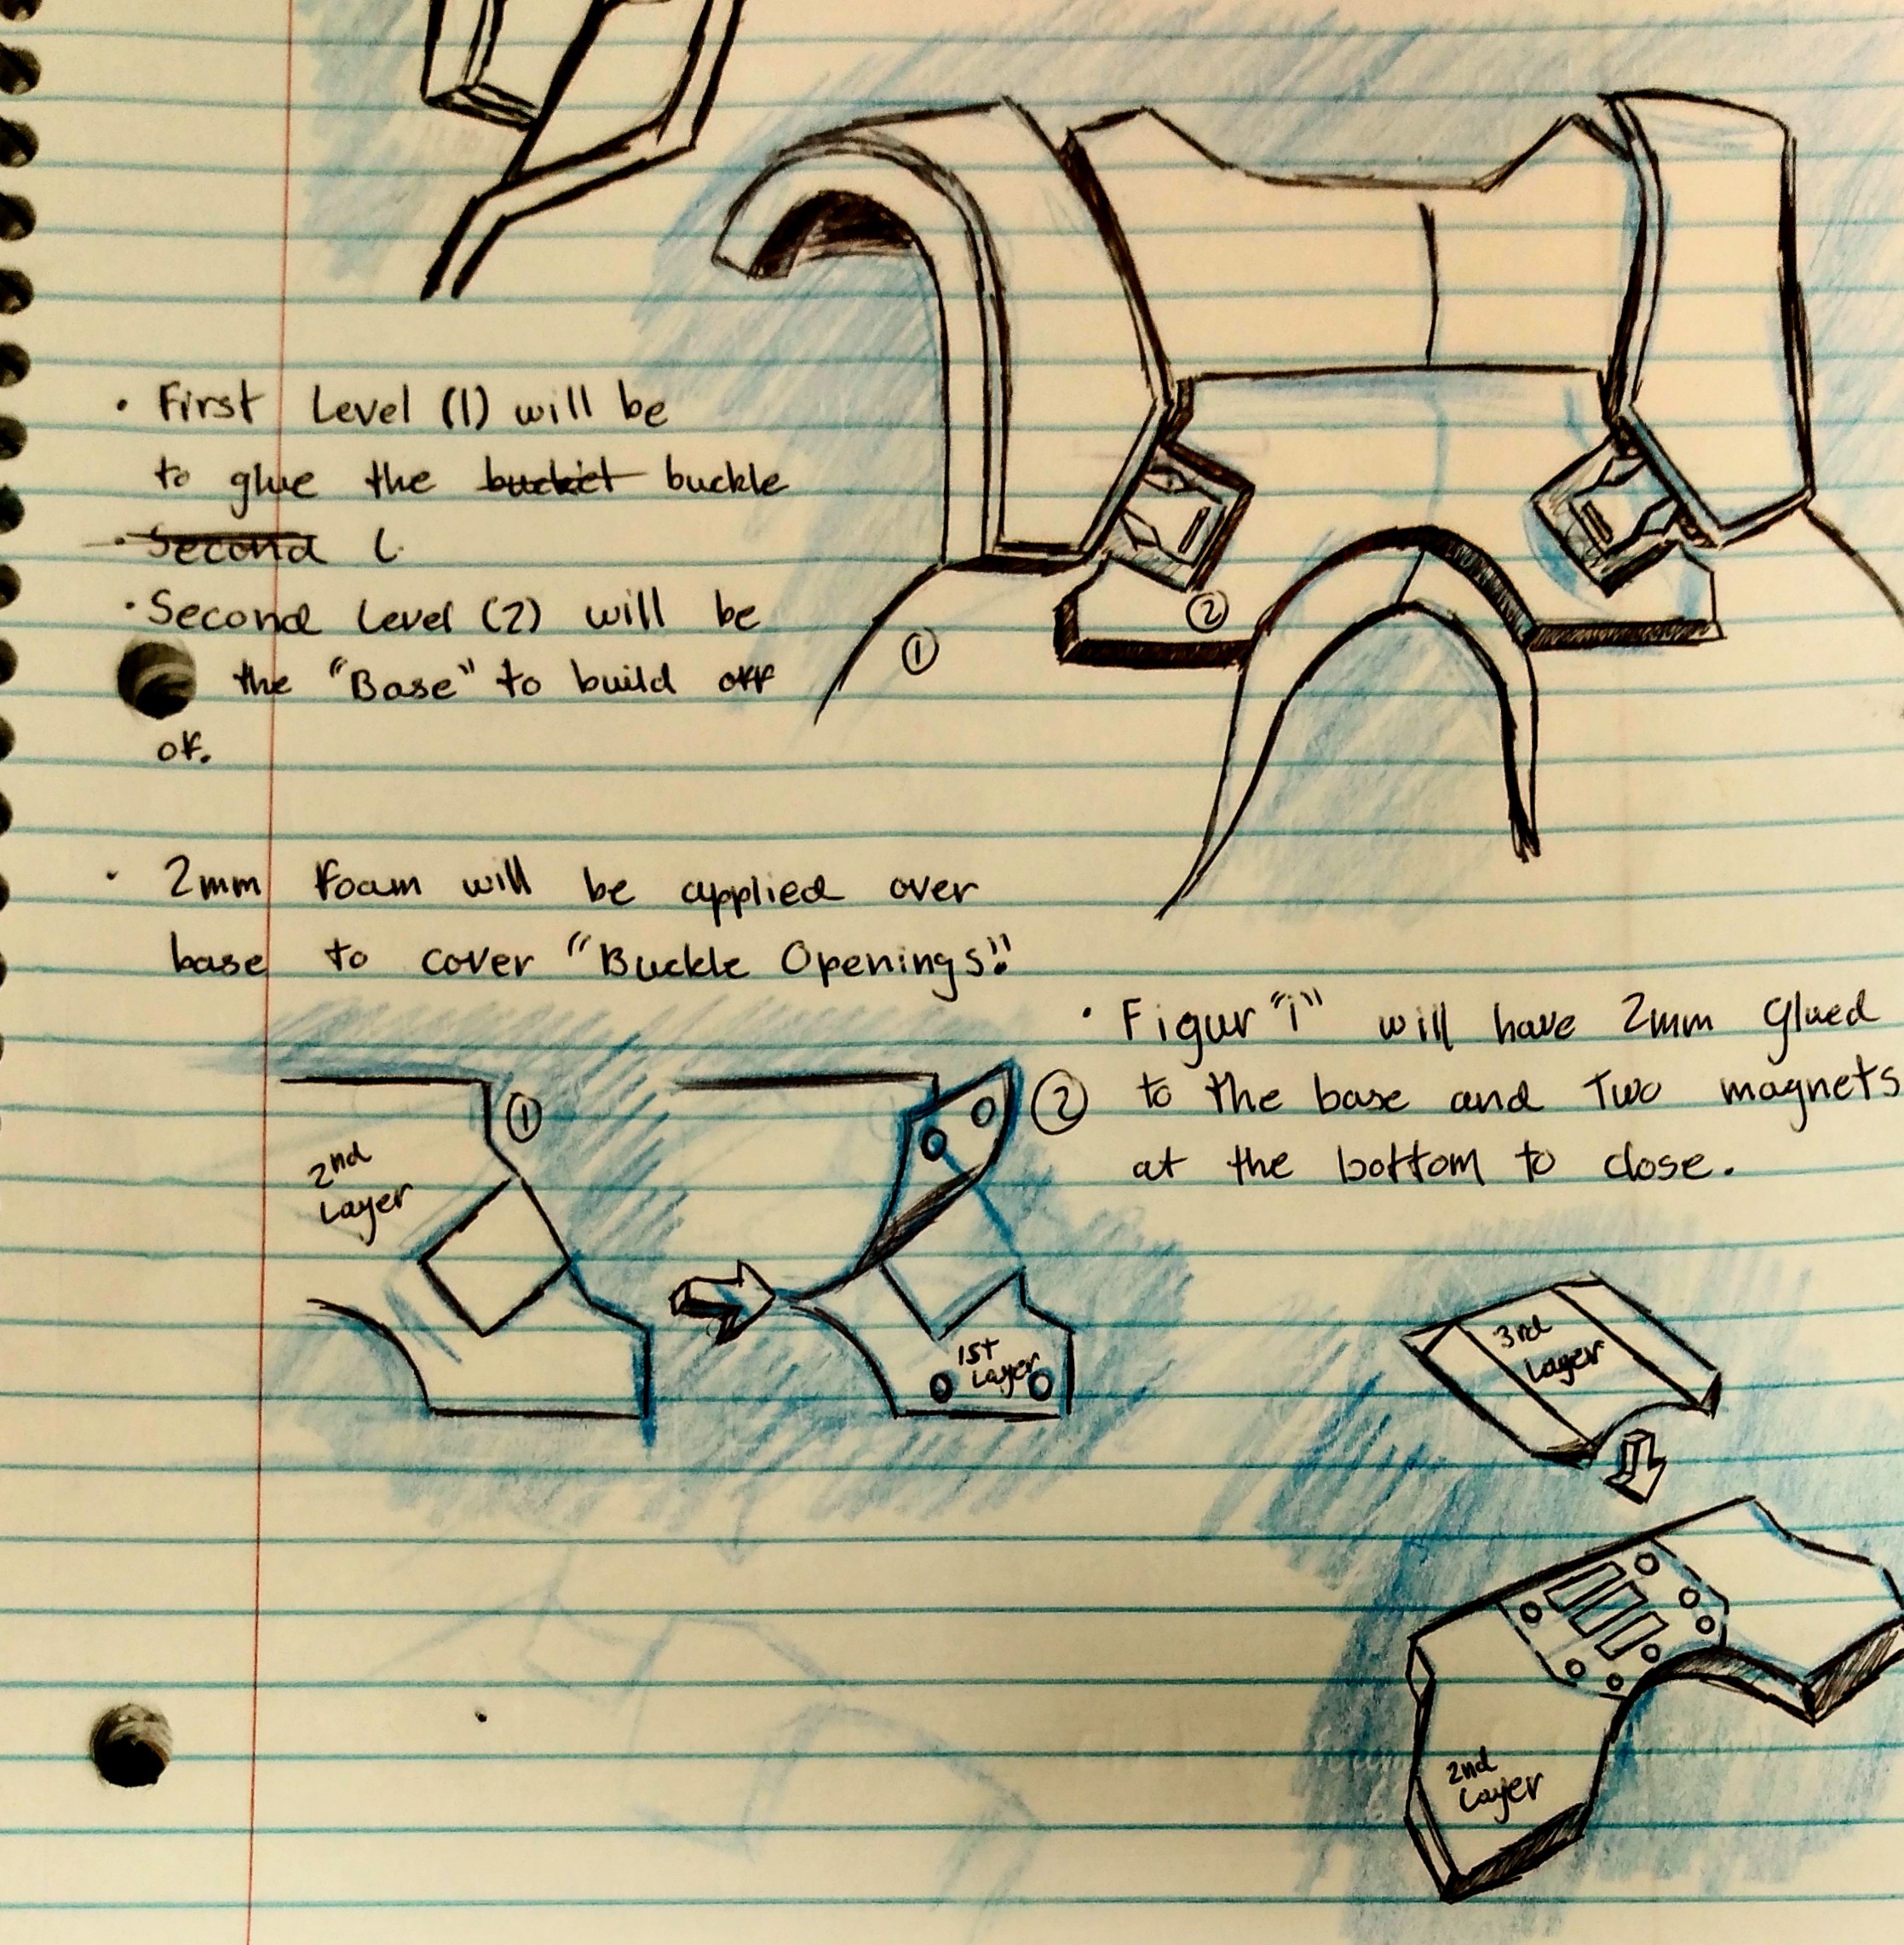 • First Level (1) will be
to glue the bucket buckle
• Second L
• Second Level (2) will be
the "Base" to build off
of.
• 2mm Foam will be applied over
base to cover "Buckle Openings".
①
②
• Figur "1" will have 2mm Glued
to the base and Two magnets
at the bottom to close.
①
2nd
Layer
②
1st
Layer
3rd
Layer
2nd
Layer